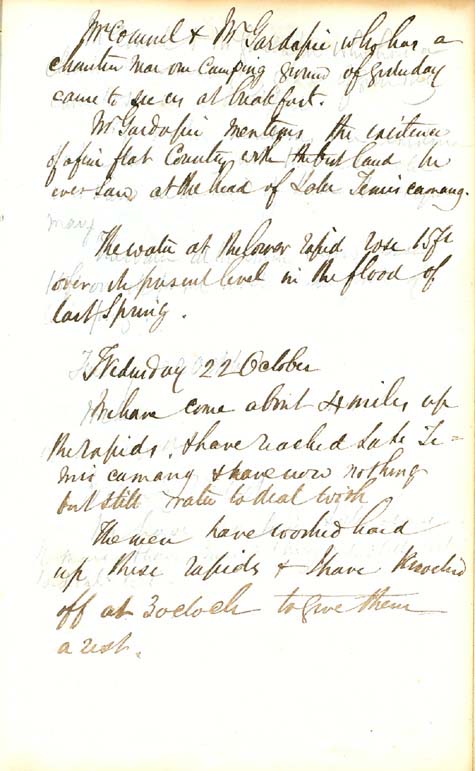 McConnel & Mr Gardapie who has a
chantier near our Camping ground of yesterday
came to see us at breakfast.
Mr Gardapie mentions the existence
of a fine flat Country with the best land he
ever saw at the head of Lake Temiscamang.
The water at the lower rapid rose 15 ft
over its present level in the flood of
last Spring.
Wednesday 22 October
We have come about 4 miles up
the rapids, & have reached Lake Te=
mis camang & have now nothing
but still water to deal with
The men have worked hard
up these rapids & I have Knocked
off at 3 oclock to give them
a rest.